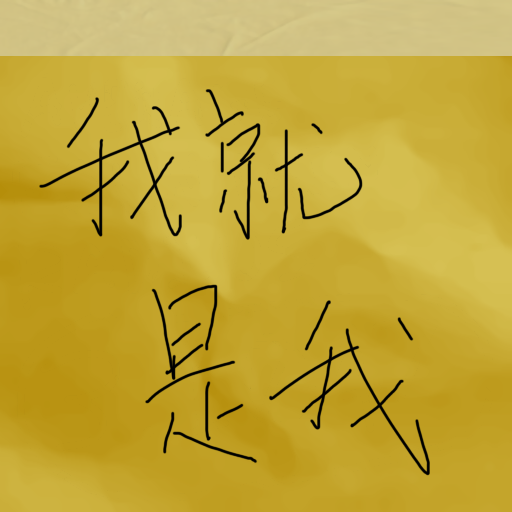 我就
是我